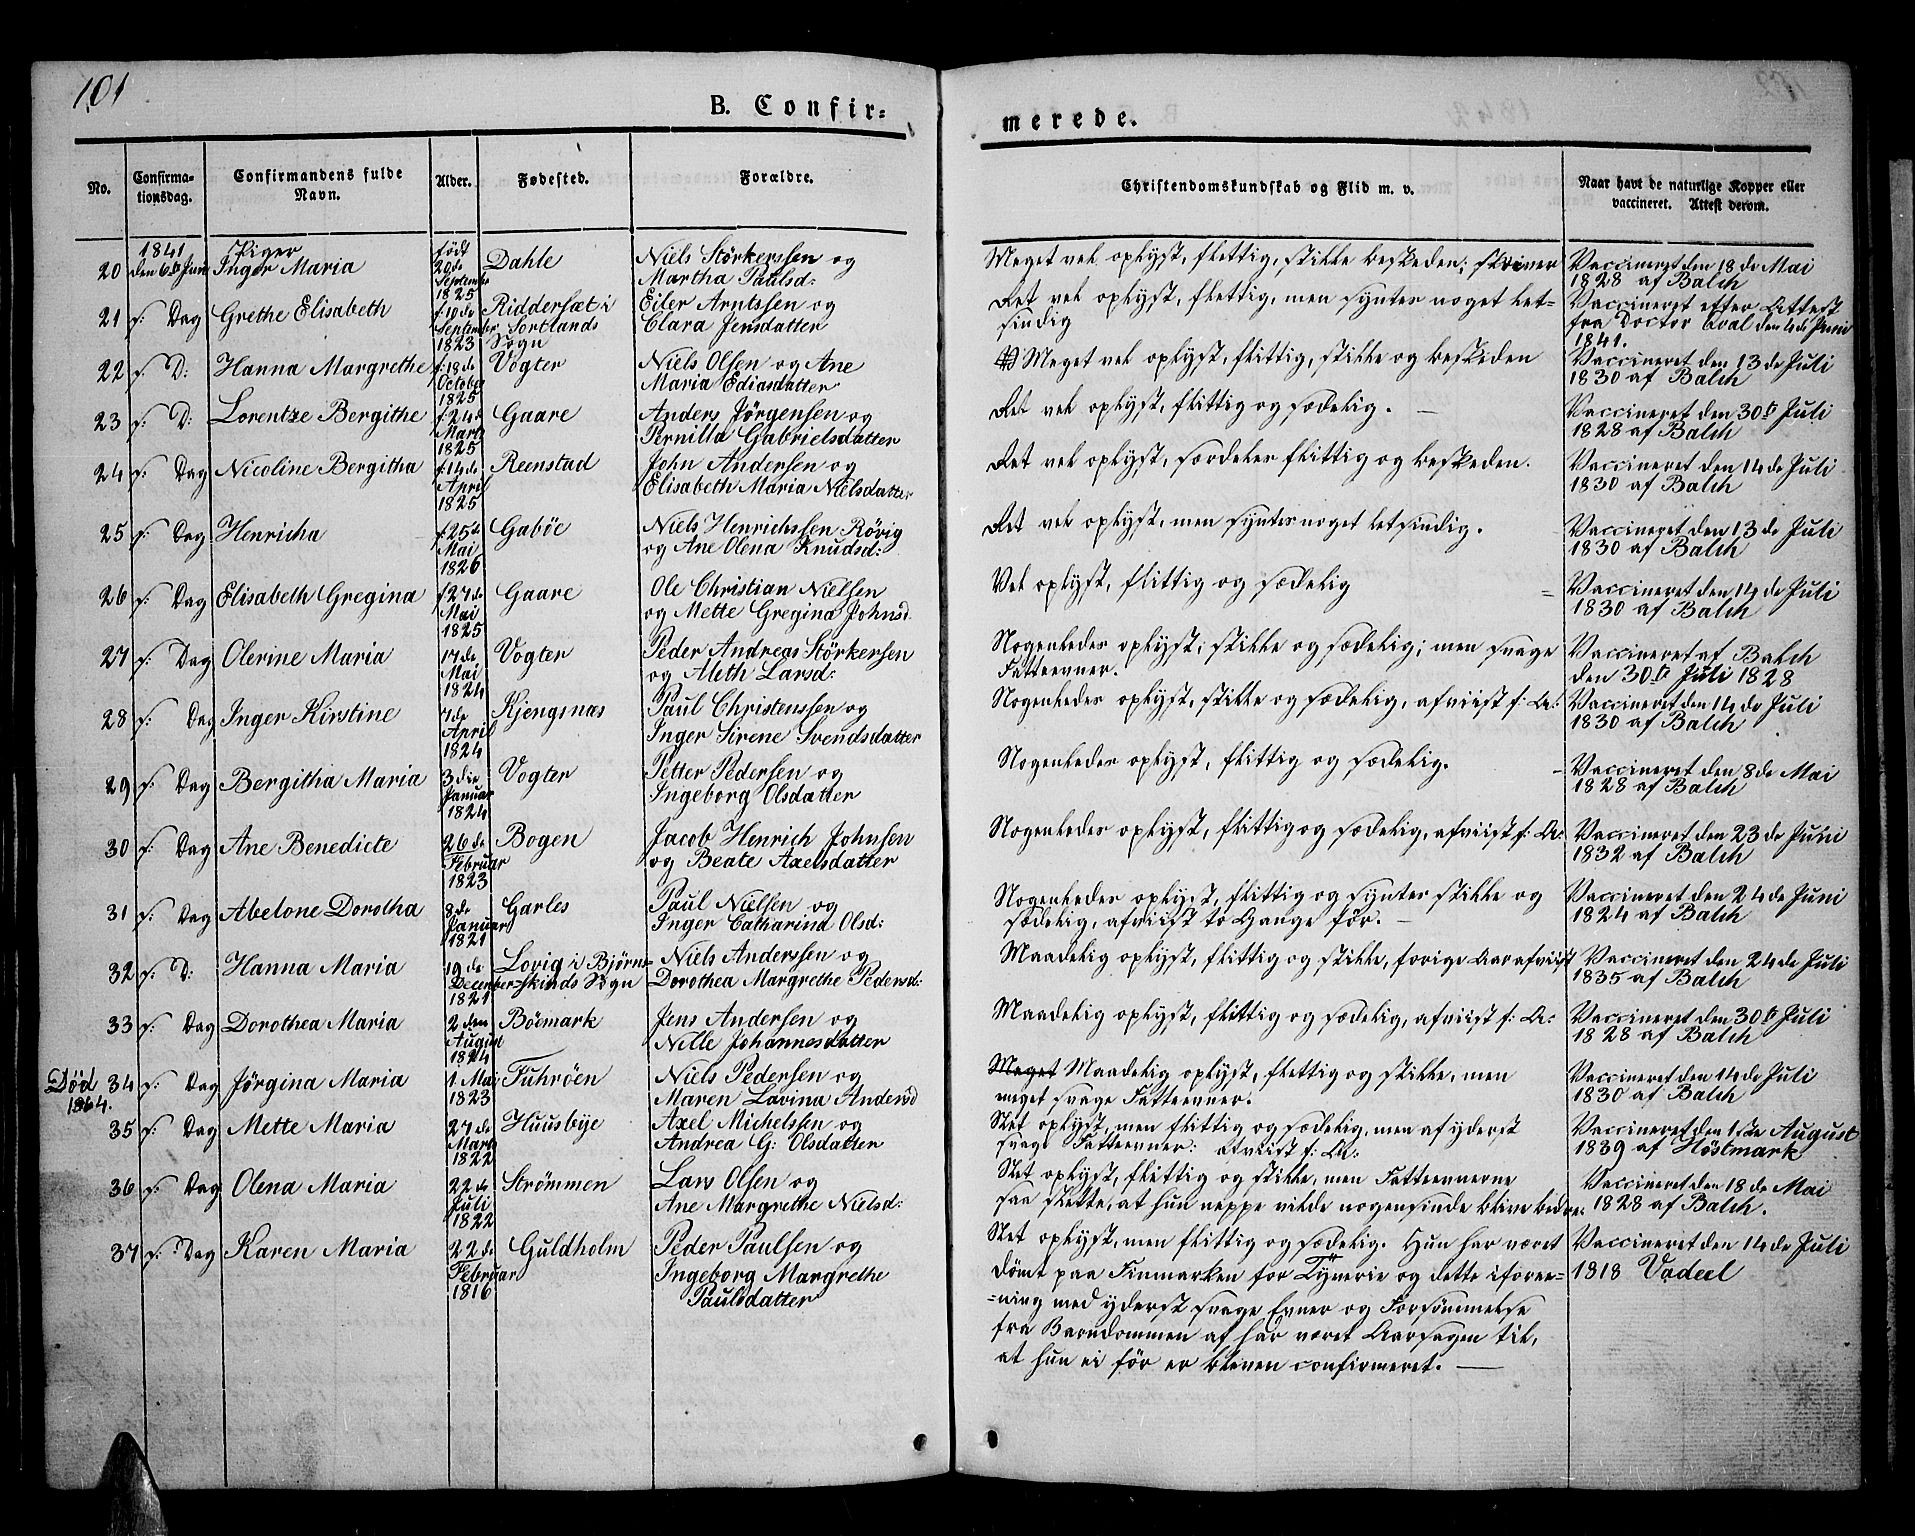 101
B. Confir=
merede.
No.
Confirma-
tionsdag.
Confirmandens fulde
Navn.
Alder.
Fødested.
Forældre.
Christendomskundskab og Flid m. v.
Naar havt de naturlige Kopper eller
vaccineret. Attest derom.
1841 Piger
20 den 6te Juni Inger Maria født 20de September 1825 Dahle Niels Störkerssen og
Martha Paulsd:
Meget vel oplyst, flittig, stille beskeden; skriver
Vaccineret den 18de Mai
1828 af Balch
21 s: Dag Grethe Elisabeth f: 19de September 1823 Riddersæt i Sortlands Sogn Eiler Arntssen og
Clara Jensdatter
Ret vel oplyst, flittig, men syntes noget let=
sindig
Vaccineret efter Attest
fra Doctor den 4de Juni
1841.
22 s: D: Hanna Margrethe f: 18de October 1825 Vogter Niels Olsen og Ane
Maria Ediasdatter
Meget vel oplyst, flittig, stille og beskeden
Vaccineret den 13de Juli
1830 af Balch
23 s: D: Lorentze Bergithe f: 24de Marts 1825 Gaare Anders Jörgensen og
Pernilla Gabrielsdatter
Ret vel oplyst, flittig og sædelig. —
Vaccineret den 30te Juli
1828 af Balch
24 s: Dag Nicoline Bergitha f: 14de April 1825 Reenstad John Andersen og
Elisabeth Maria Nielsdatter
Ret vel oplyst, særdeles flittig og beskeden.
Vaccineret den 14de Juli
1830 af Balch
25 s: Dag Henricha f: 25de Mai 1826 Gaböe Niels Henrichssen Rövig
og Ane Olena Knudsd:
Ret vel oplyst, men syntes noget letsindig.
Vaccineret den 13de Juli
1830 af Balch
26 s: Dag Elisabeth Gregina f 27de Mai 1825 Gaare Ole Christian Nielsen
og Mette Gregina Johnsd.
Vel oplyst, flittig og sædelig
Vaccineret den 14de Juli
1830 af Balch
27 s: Dag Olerine Maria 17de Mai 1824 Vogter Peder Andreas Störkersen
og Aleth Larsd:
Nogenledes oplyst; stille og sædelig; men svage
Fatteevner.
Vaccineret af Balch
den 30te Juli 1828
28 s: Dag Inger Kirstine 7de April 1824 Kjengsnæs Paul Christenssen og
Inger Sirene Svendsdatter
Nogenledes oplyst, stille og sædelig, afviist f: A:
Vaccineret den 14de Juli
1830 af Balch
29 s: Dag Bergitha Maria 3die Januar 1824 Vogter Petter Pedersen og
Ingeborg Olsdatter
Nogenledes oplyst, flittig og sædelig.
Vaccineret den 8de Mai
1828 af Balch
30 s: Dag Ane Benedicte 26de Februar 1823 Bogen Jacob Henrich Johnsen
og Beate Axelsdatter
Nogenledes oplyst, flittig og sædelig, afviist f: A:
Vaccineret den 23de Juni
1832 af Balch
31 s: Dag Abelone Dorotha 8de Januar 1821 Garles Paul Nielsen og
Inger Catharina Olsd:
Nogenledes oplyst, flittig og syntes stille og
sædelig, afviist to Gange før. —
Vaccineret den 24de Juni
1824 af Balch
32 s: D: Hanna Maria 19de December 1821 Lovig i Bjørne=skinds Sogn Niels Anderssen og
Dorothea Margrethe Pedersd:
Maadelig oplyst, flittig og stille, forige Aar afviist
Vaccineret den 24de Juli
1835 af Balch
33 s: Dag Dorothea Maria 2den August 1824 Böemark Jens Andersen og
Nille Johannesdatter
Maadelig oplyst, flittig og sædelig, afviist f: A:
Vaccineret den 30te Juli
1828 af Balch
Död
1864.
34 s: Dag Jörgina Maria 1 Mai 1823 Fuhröen Niels Pedersen og
Maren Lovina Andersd
Meget Maadelig oplyst, flittig og stille, men
meget svage Fatteevner.
Vaccineret den 14de Juli
1830 af Balch
35 s: Dag Mette Maria 27de Marts 1822 Huusbye Axel Michelssen og
Andrea G: Olsdatter
Slet oplyst, men flittig og sædelig, men af yderst
svage Fatteevner: afviist f: A:
Vaccineret den 1ste August
1839 af Höstmark
36 s: Dag Olena Maria 22de Juli 1822 Strömmen Lars Olsen og
Ane Margrethe Nielsd:
Slet oplyst, flittig og stille, men Fatteevnerne
saa slette, at hun neppe vilde nogensinde blive bedre.
Vaccineret den 18de Mai
1828 af Balch.
37 s: Dag Karen Maria 22de Februar 1816 Guldholm Peder Paulsen og
Ingeborg Margrethe
Paulsdatter
Slet oplyst, men flittig og sædelig. Hun har været
dömt paa Finmarken for Tÿverie og dette i foree=
=ning med yderst svage Evner og Forsömmelse
fra Barndommen af har været Aarsagen til,
at hun ei för er bleven confirmeret. —
Vaccineret den 14de Juli
1818 Vadeel